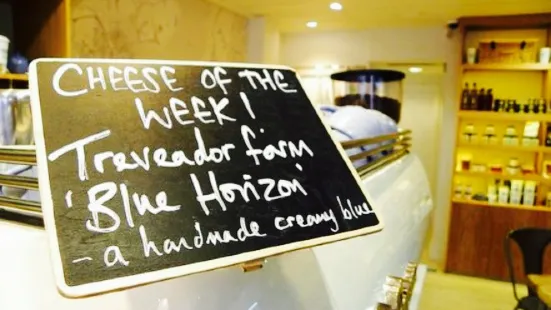 CHEESE OF THE
WEEK!
Treveador farm
'Blue Horizon'
- a handmade creamy blue